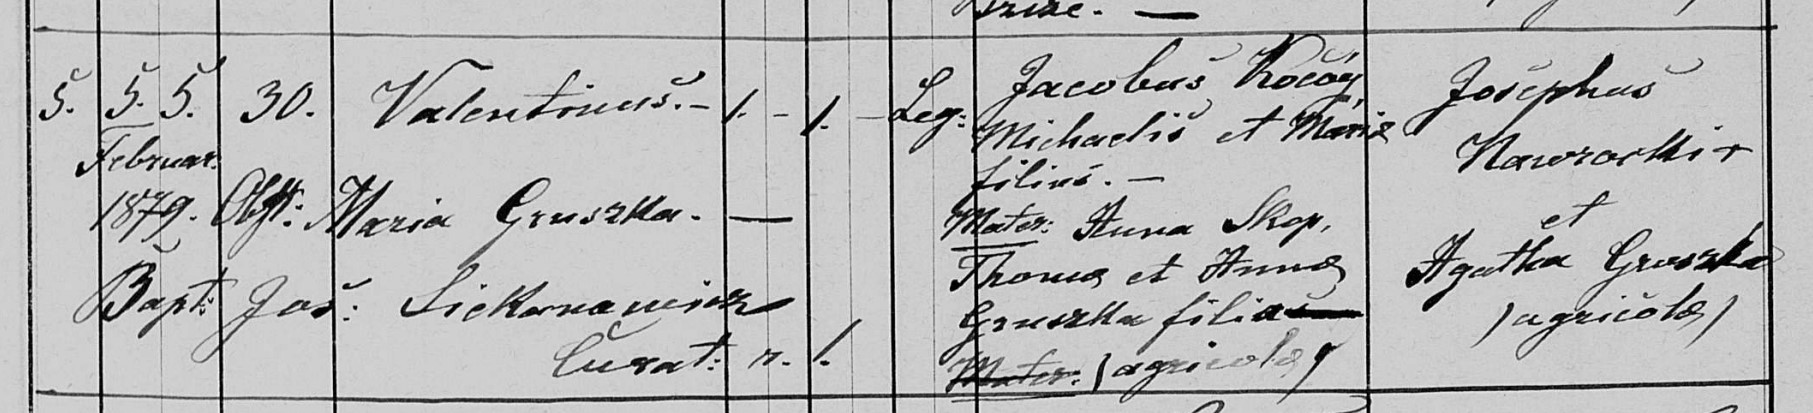 5. 5. 5. 30. Valentinus. – 1. – 1. – Leg: Jacobus Kočoy, Josephus
Februar. Michaelis et Maria Nawrocki +
filius. –
1879. Obst: Maria Gruszka. — Mater: Anna Skop, et
Bapt: Jos: Thomæ et Annæ Agatha Gruszka
Gruszka filia — /agricolæ/
Curat: r. 1. Mater: /agricolæ/